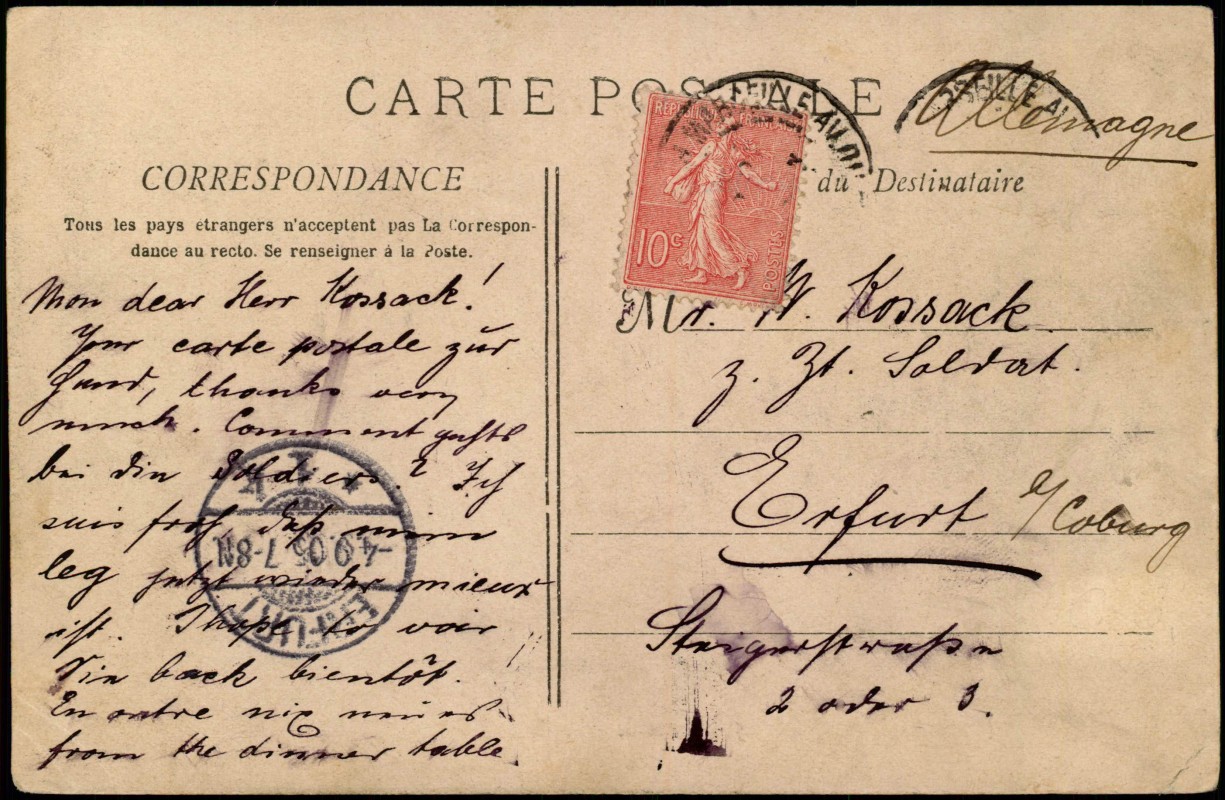 CARTE POSTALE
Allemagne
CORRESPONDANCE
du Destinataire
Tous les pays étrangers n'acceptent pas La Correspon-
dance au recto. Se renseigner à la Poste.
REPUBLIQUE FRANÇAISE
10c
POSTES
Mon dear Herr Kossack!
Your carte postale zur
Hand, thanks very
much. Comment gehts
bei den Soldiers? Ich
suis froh daß mein
leg jetzt wieder mieux
ist. I hope to voir
Sie back bientôt.
En outre nix neues
from the dinner table.
ERFURT
-4.9.05.7-8N
Mr. W. Kossack
z. Zt. Soldat.
Erfurt
a/Coburg
Steigerstraße
2 oder 3.